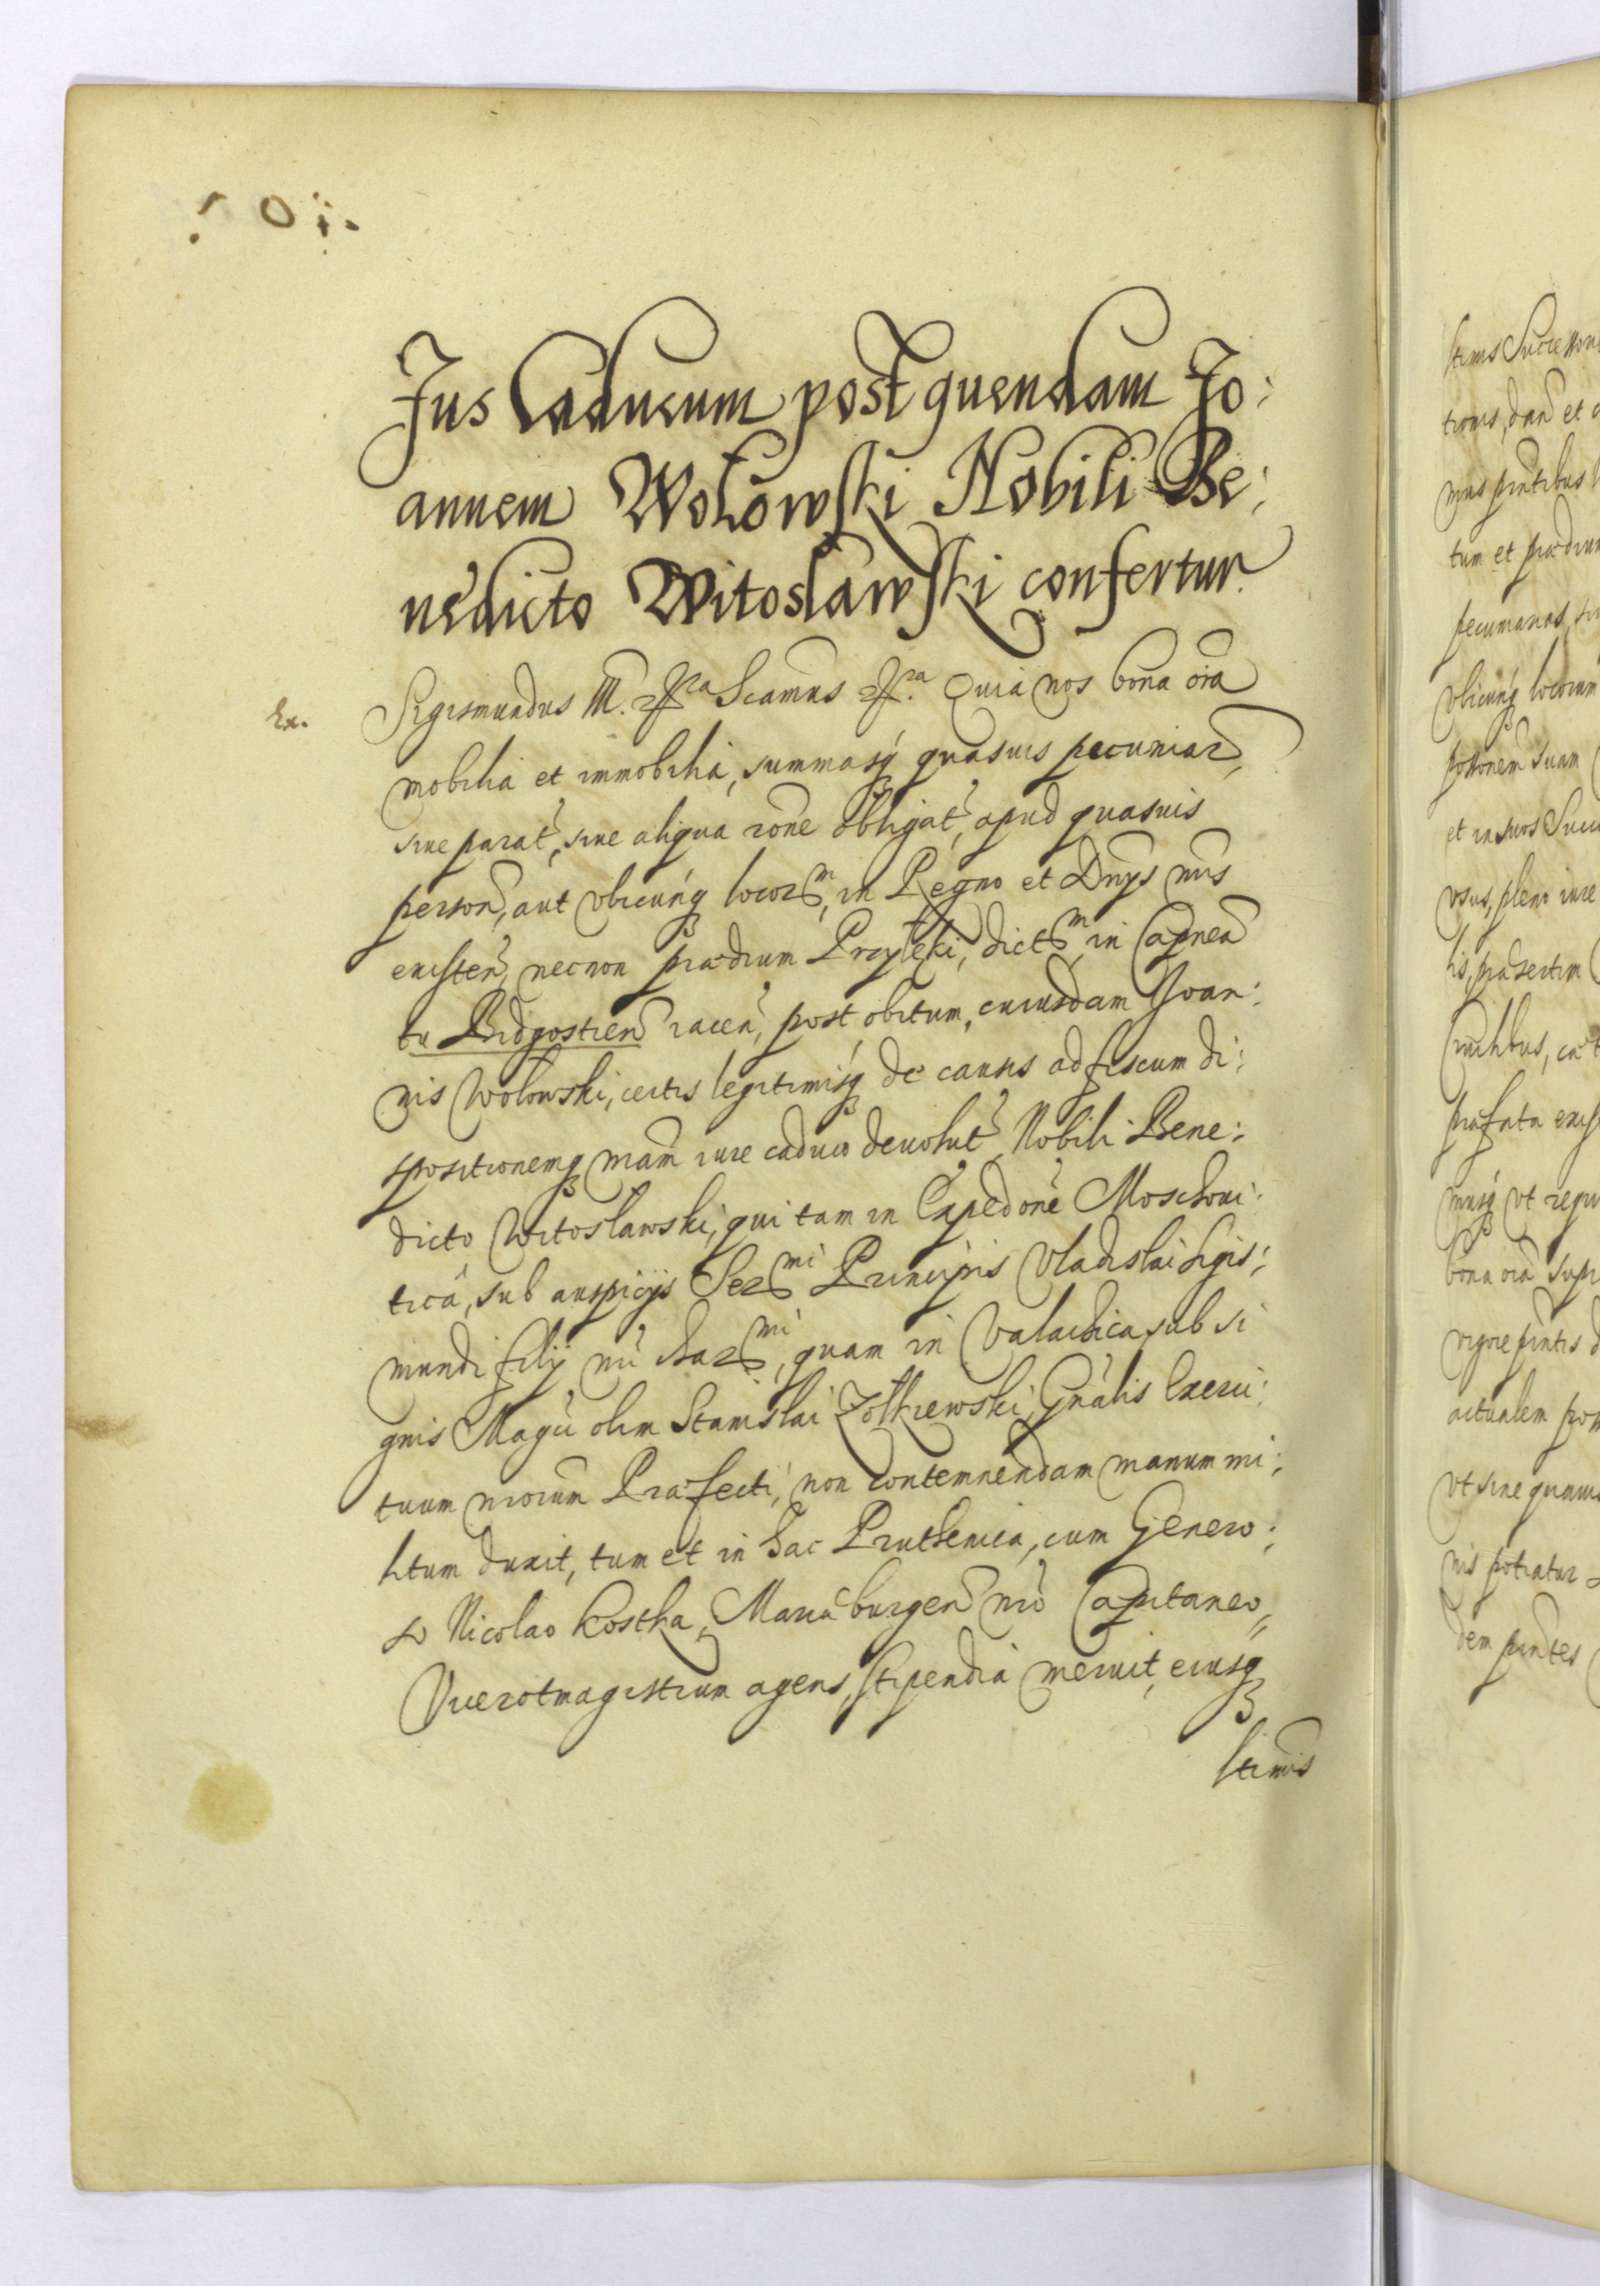 Jus Caducum post quendam Jo:
annem Wolowski Nobili Be:
nedicto Witosławski confertur.
Ex.
Sigismundus III. etc. Scamus etc. Quia nos bona oĩa
mobilia et immobilia, summasq́ quasuis pecuniar̃,
siue parat̃, siue aliqua rõne obligat̃, apud quasuis
persoñ, aut vbicunq́ locorm, in Regno et Dnijs nris
existeñ, necnon prædium Przyłęki, dictm, in Capnea
tu Bidgostieñ iaceñ, post obitum, cuiusdam Joan:
nis Wolowski, certis legitimisq́ de causis ad fiscum di:
spositionemq́ nr̃am iure caduco deuolut̃, Nobili Bene:
dicto Witosławski, qui tam in Expedõne Moschoui:
ticâ, sub auspicijs Sermi Principis Vladislai Sigis:
mundi filij nri charmi, quam in Valachica, sub si
gnis Magci olim Stanislai Zołkiewski, Gñalis Exerci:
tuum nrorum Præfecti, non contemnendam manum mi:
litum duxit, tum et in hac Pruthenica, cum Genero:
so Nicolao Kostka, Mariæburgeñ nrõ Capitaneo,
Vicerotmagistrum agens, stipendia meruit, eiusq́
stimis
stimis Successori
tum et prædium
vbicunq́ locorum
et in suos Succ
vsus, pleno iure
lis, præsertim
bona oĩa
actualem
vt siue quam
nis potiatur
dem